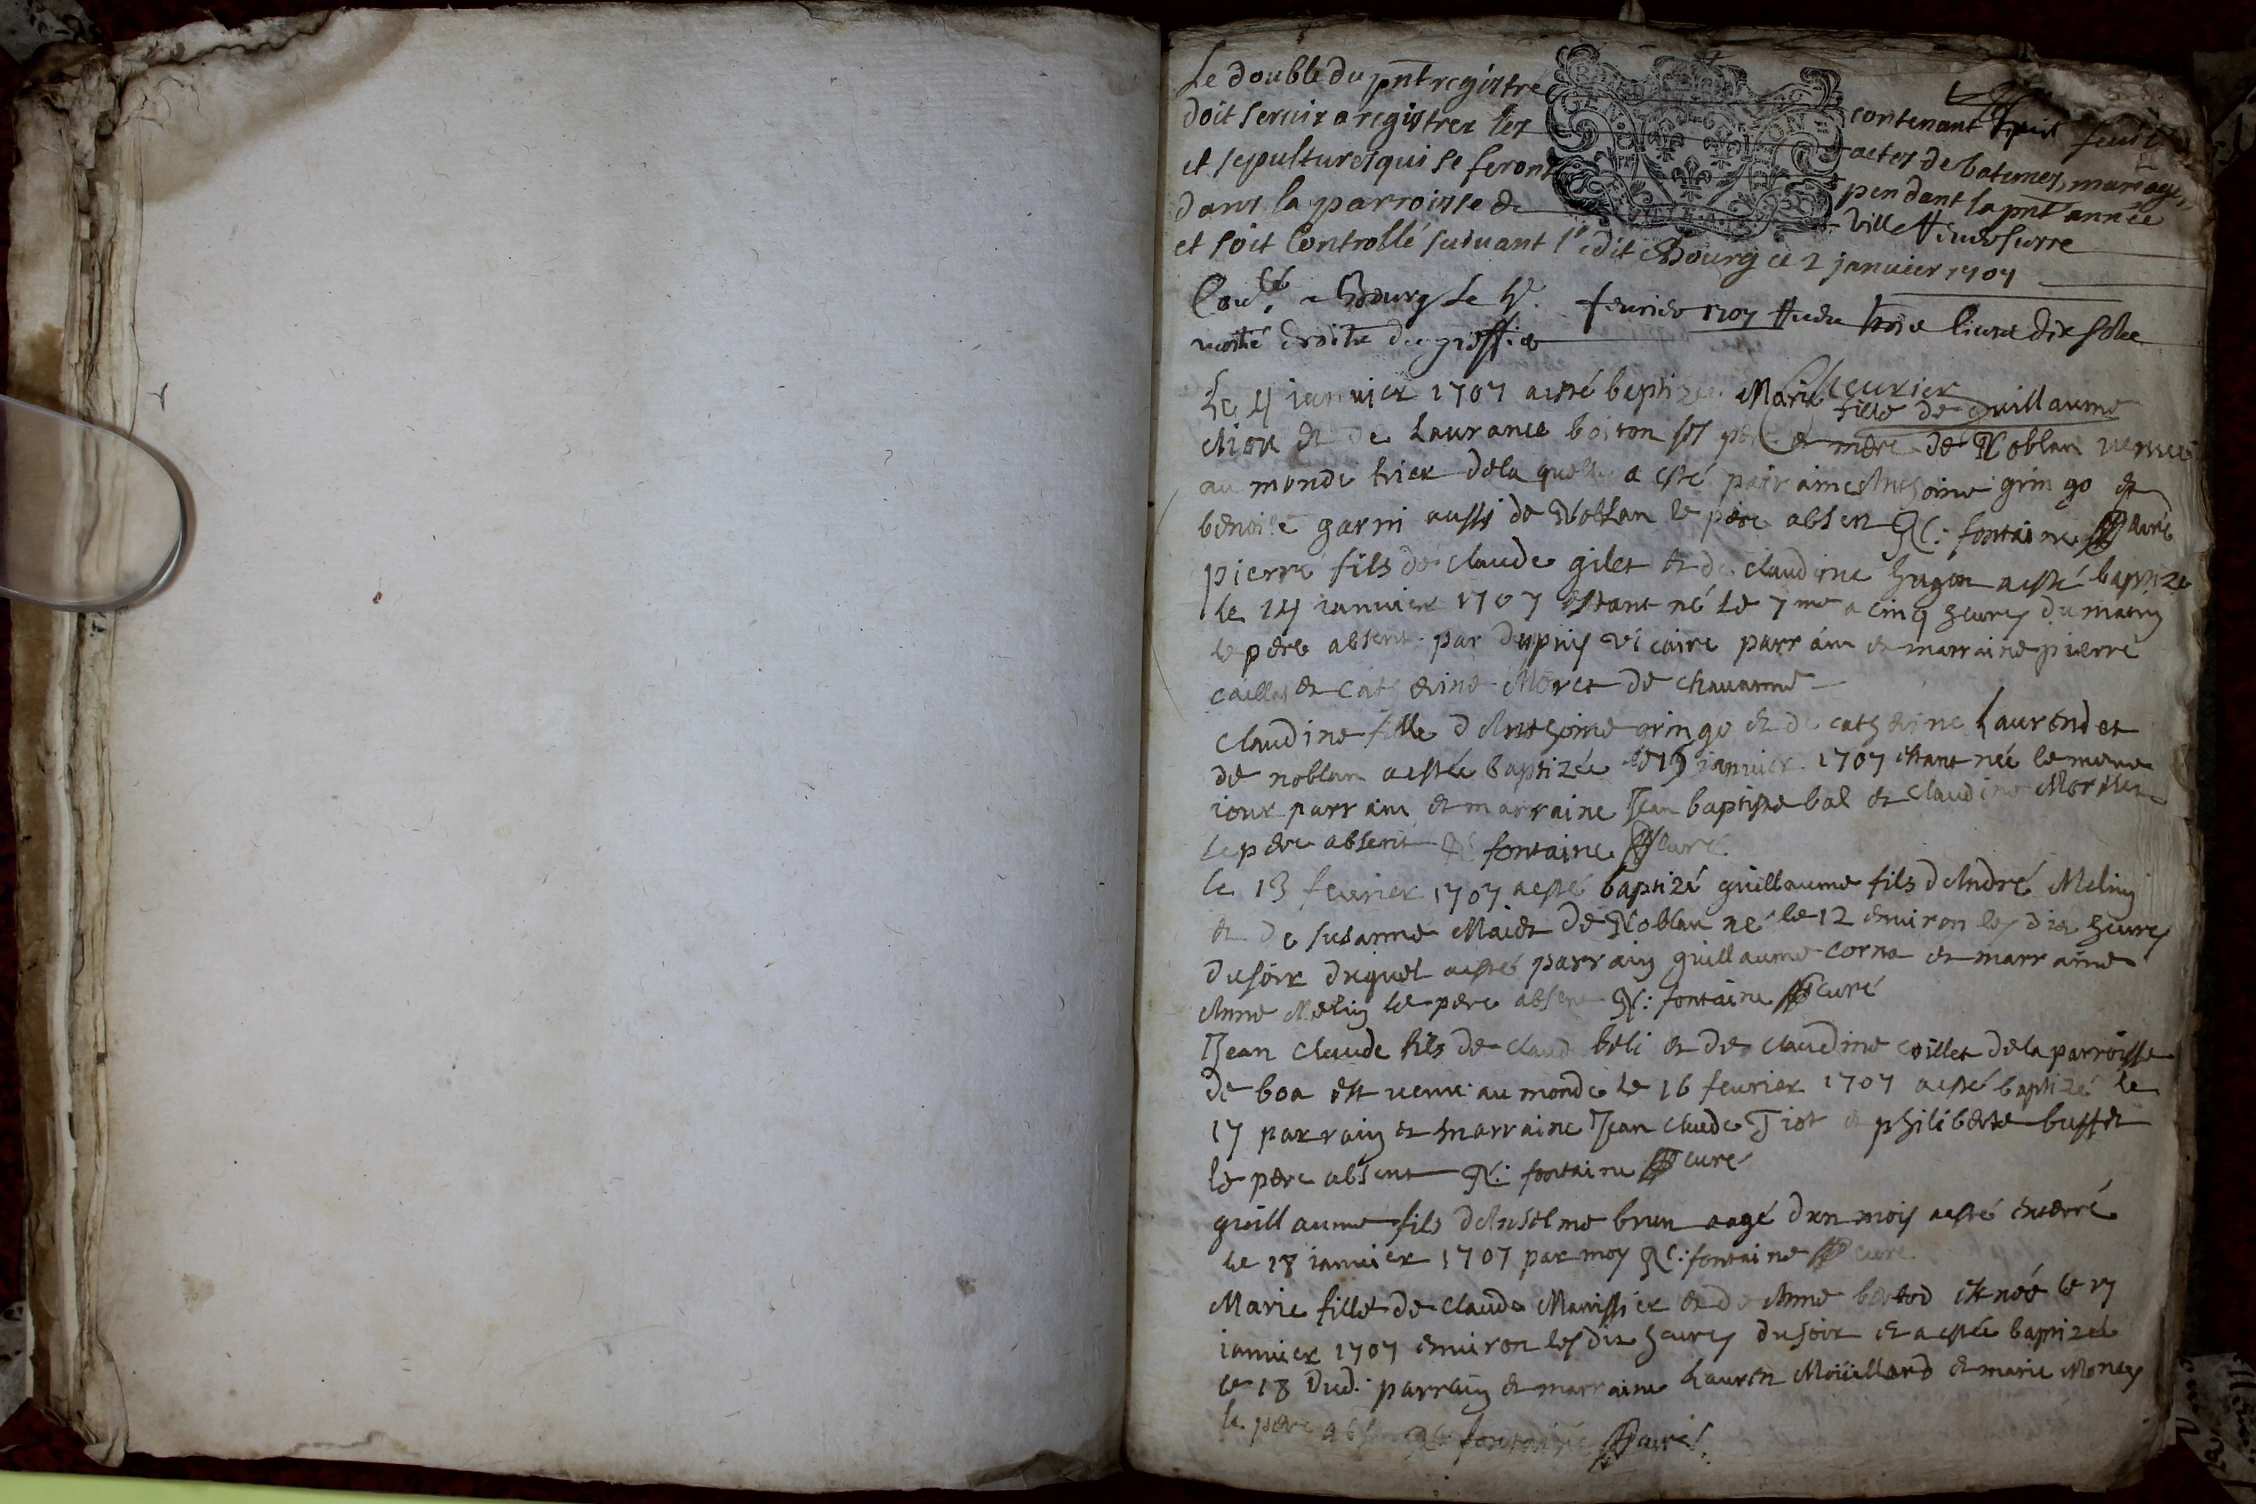 Le double du pnt registre contenant huit feuillets
doit servir a registrer les actes de batemes, mariages,
et sepultures qui se feront pendant la pnt année
dans la parroisse de ville
et soit Controllé suivant l'edit a Bourg ce 2 janvier 1707
a Bourg le fevrier 1707 trois livres dix sols
moitié droits de greffier
Le 4 ianvier 1707 a esté baptizée Marie fille de guillaume
et de Laurance boiron ses pere et mere de Noblan venue
au monde hier de la quelle a esté parraine Anthoine gringo et
benoite garni aussi de Noblan le pere absent N: fontaine curé
pierre fils de claude gilet et de claudine hugon a esté baptizé
le 14 ianvier 1707 estant né le 7me a cinq heures du matin
le pere absent par Dupuis vicaire parrain et marraine pierre
caillat et Catherine Moret de chavanne
Claudine fille d'Anthoine gringo et de catherine Laurendet
de noblan a estée baptizée le 15 janvier 1707 estant née le meme
iour parrain et marraine Jean baptiste bal et claudine
le pere absent N: fontaine curé
le 13 fevrier 1707 a esté baptizé guillaume fils d'André Melin
et de susanne Maiet de Noblan né le 12 environ les dix heures
du soir duquel a esté parrain guillaume corna et marraine
Anne Melin le pere absent N: fontaine curé
Jean claude fils de claude beli et de claudine coillet de la parroisse
de boa est venu au monde le 16 fevrier 1707 a esté baptizé le
17 parrain et marraine Jean claude Tiot et philiberte buffet
le pere absent N: fontaine curé
guillaume fils d'Anselme brun aagé d'un mois a esté enterré
le 18 ianvier 1707 par moy N: fontaine curé
Marie fille de claude Manissier et de Anne bertod est née le 17
ianvier 1707 environ les dix heures du soir et a estée baptizée
le 18 dud: parrain et marraine Lauren Moüillard et marie
le pere absent N: fontaine curé